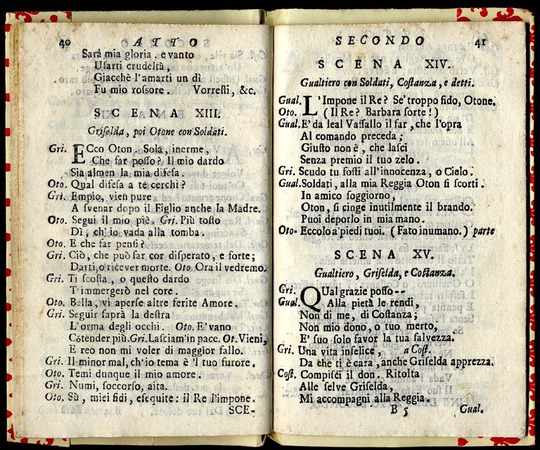 40 ATTO
Sarà mia gloria, e vanto
Usarti crudeltà,
Giacchè l'amarti un dì
Fu mio rossore. Vorresti, &c.
SCENA XIII.
Griselda, poi Otone con Soldati.
Gri. ECco Oton. Sola, inerme,
Che far posso? Il mio dardo
Sia almen la mia difesa.
Oto. Qual difesa a te cerchi?
Gri. Empio, vien pure
A svenar dopo il Figlio anche la Madre.
Oto. Segui il mio piè. Gri. Più tosto
Dì, ch'io vada alla tomba.
Oto. E che far pensi?
Gri. Ciò, che può far cor disperato, e forte;
Darti, o ricever morte. Oto. Ora il vedremo.
Gri. Ti scosta, o questo dardo
T'immergerò nel core.
Oto. Bella, vi aperse altre ferite Amore.
Gri. Seguir saprà la destra
L'orma degli occhi. Oto. E' vano
Cõtender più. Gri. Lasciam'in pace. Ot. Vieni,
E reo non mi voler di maggior fallo.
Gri. Il minor mal, ch'io tema è 'l tuo furore.
Oto. Temi dunque il mio amore.
Gri. Numi, soccorso, aita.
Oto. Sù, miei fidi, eseguite: il Re l'impone.
SCE-
SECONDO 41
SCENA XIV.
Gualtiero con Soldati, Costanza, e detti.
Gual. L'Impone il Re? Se' troppo fido, Otone.
Oto. (Il Re? Barbara sorte!)
Gual. E' da leal Vassallo il far, che l'opra
Al comando preceda;
Giusto non è, che lasci
Senza premio il tuo zelo.
Gri. Scudo tu fosti all'innocenza, o Cielo.
Gual. Soldati, alla mia Reggia Oton si scorti.
In amico soggiorno,
Oton, si cinge inutilmente il brando.
Puoi deporlo in mia mano.
Oto. Eccolo a' piedi tuoi. (Fato inumano.) parte
SCENA XV.
Gualtiero, Griselda, e Costanza.
Gri. QUal grazie posso--
Gual. Alla pietà le rendi,
Non di me, di Costanza;
Non mio dono, o tuo merto,
E' suo solo favor la tua salvezza.
Gri. Una vita infelice, a Cost.
Da che ti è cara, anche Griselda apprezza.
Cost. Compisci il don. Ritolta
Alle selve Griselda,
Mi accompagni alla Reggia.
B 5 Gual.